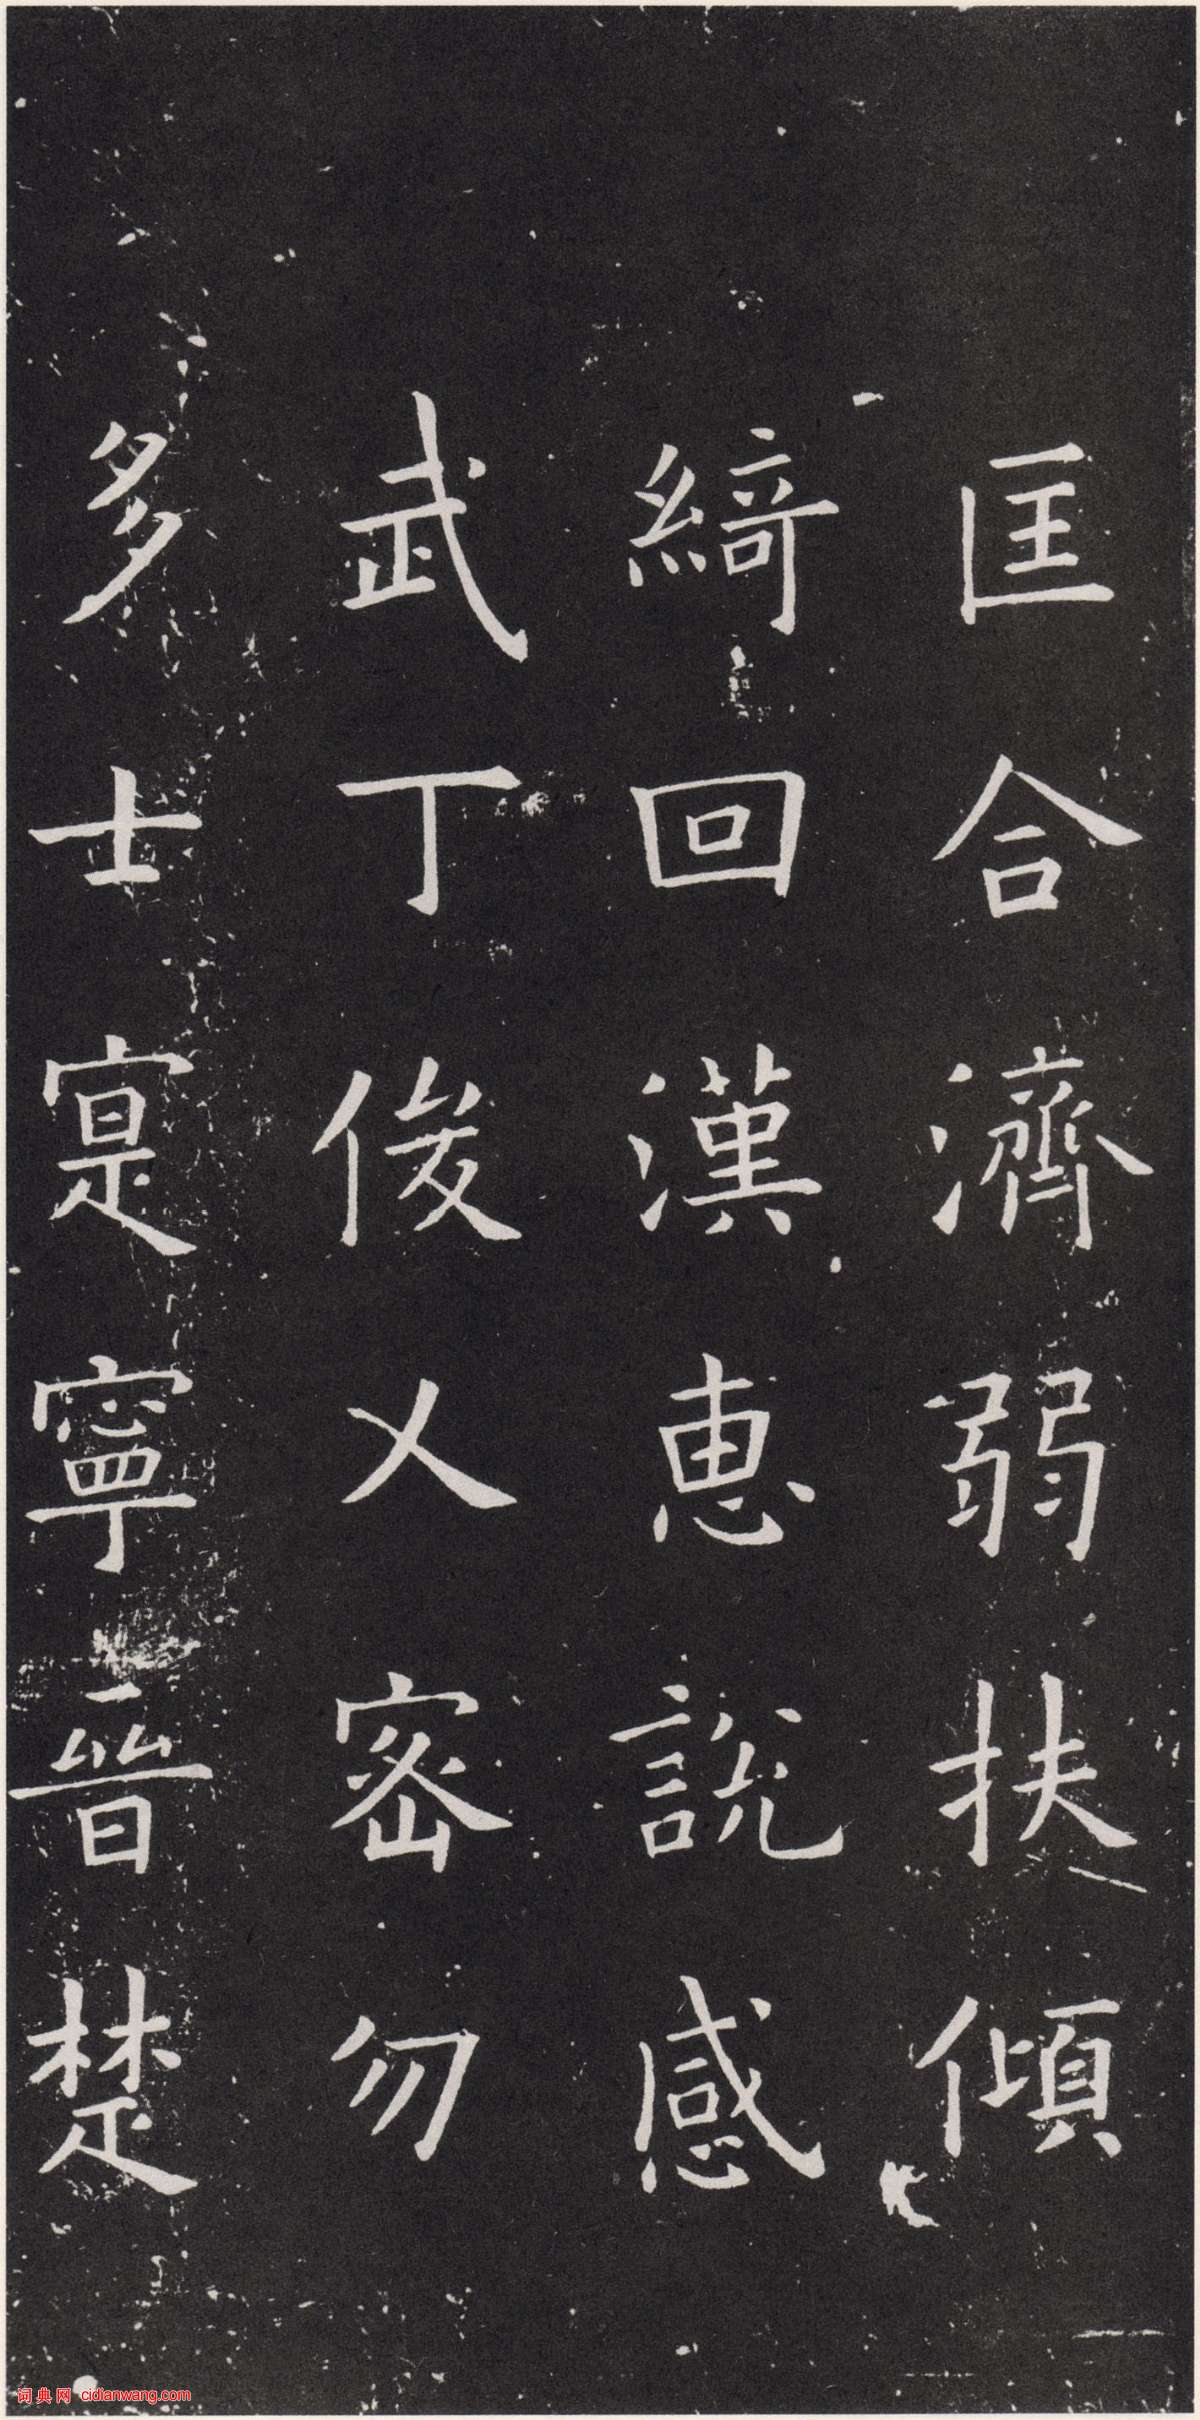 匡合濟弱扶傾
綺回漢惠說感
武丁俊乂密勿
多士寔寧晉楚
词典网 cidianwang.com